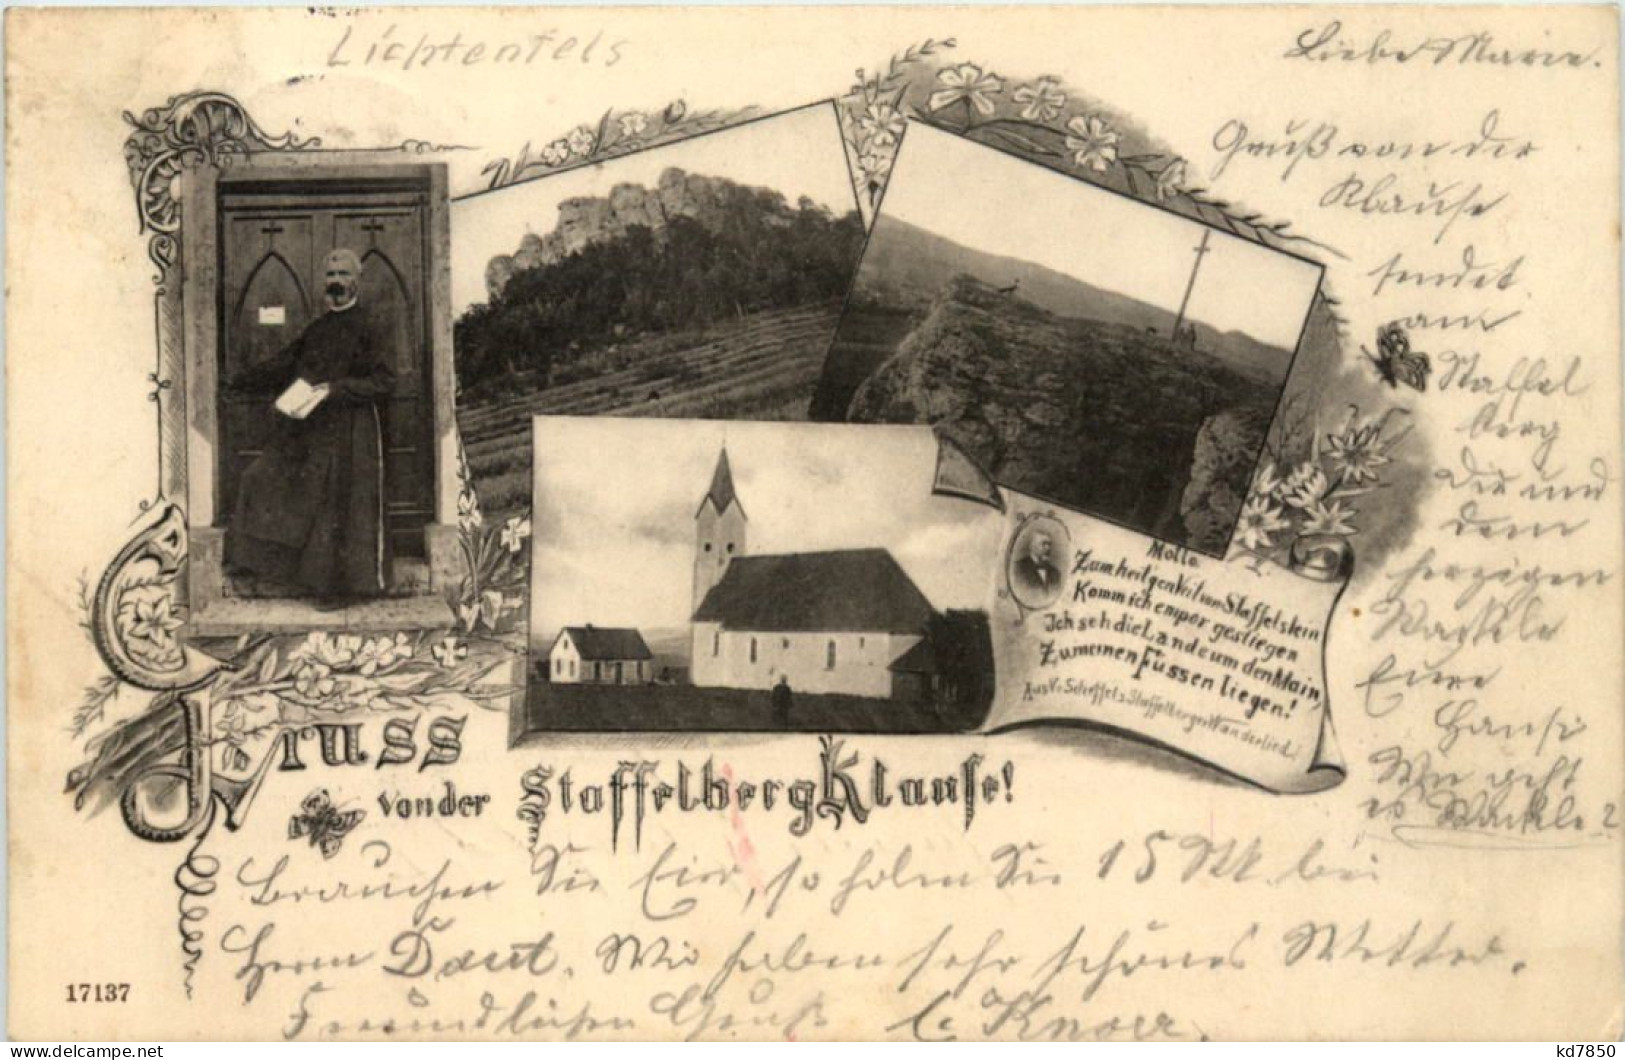 Lichtenfels
Liebe Marie.
Gruß von der
Klause
sendet
am
Staffel
berg
Die und
dem
herzigen
Wackele
Eure
Hansi
Wie geht
es Wackele?
Motto.
Zum heil'gen Veit von Staffelstein
Komm ich empor gestiegen
Ich seh die Lande um den Main,
Zu meinen Füssen liegen!
Aus V. Scheffels Staffelberger Wanderlied.
Gruss
von der Staffelberg Klause!
Brauchen Sie Eier, so holen Sie 15 Stk. bei
Herrn Daut. Wir haben sehr schönes Wetter.
Freundlichen Gruß C. Knorr.
17137
kd7850